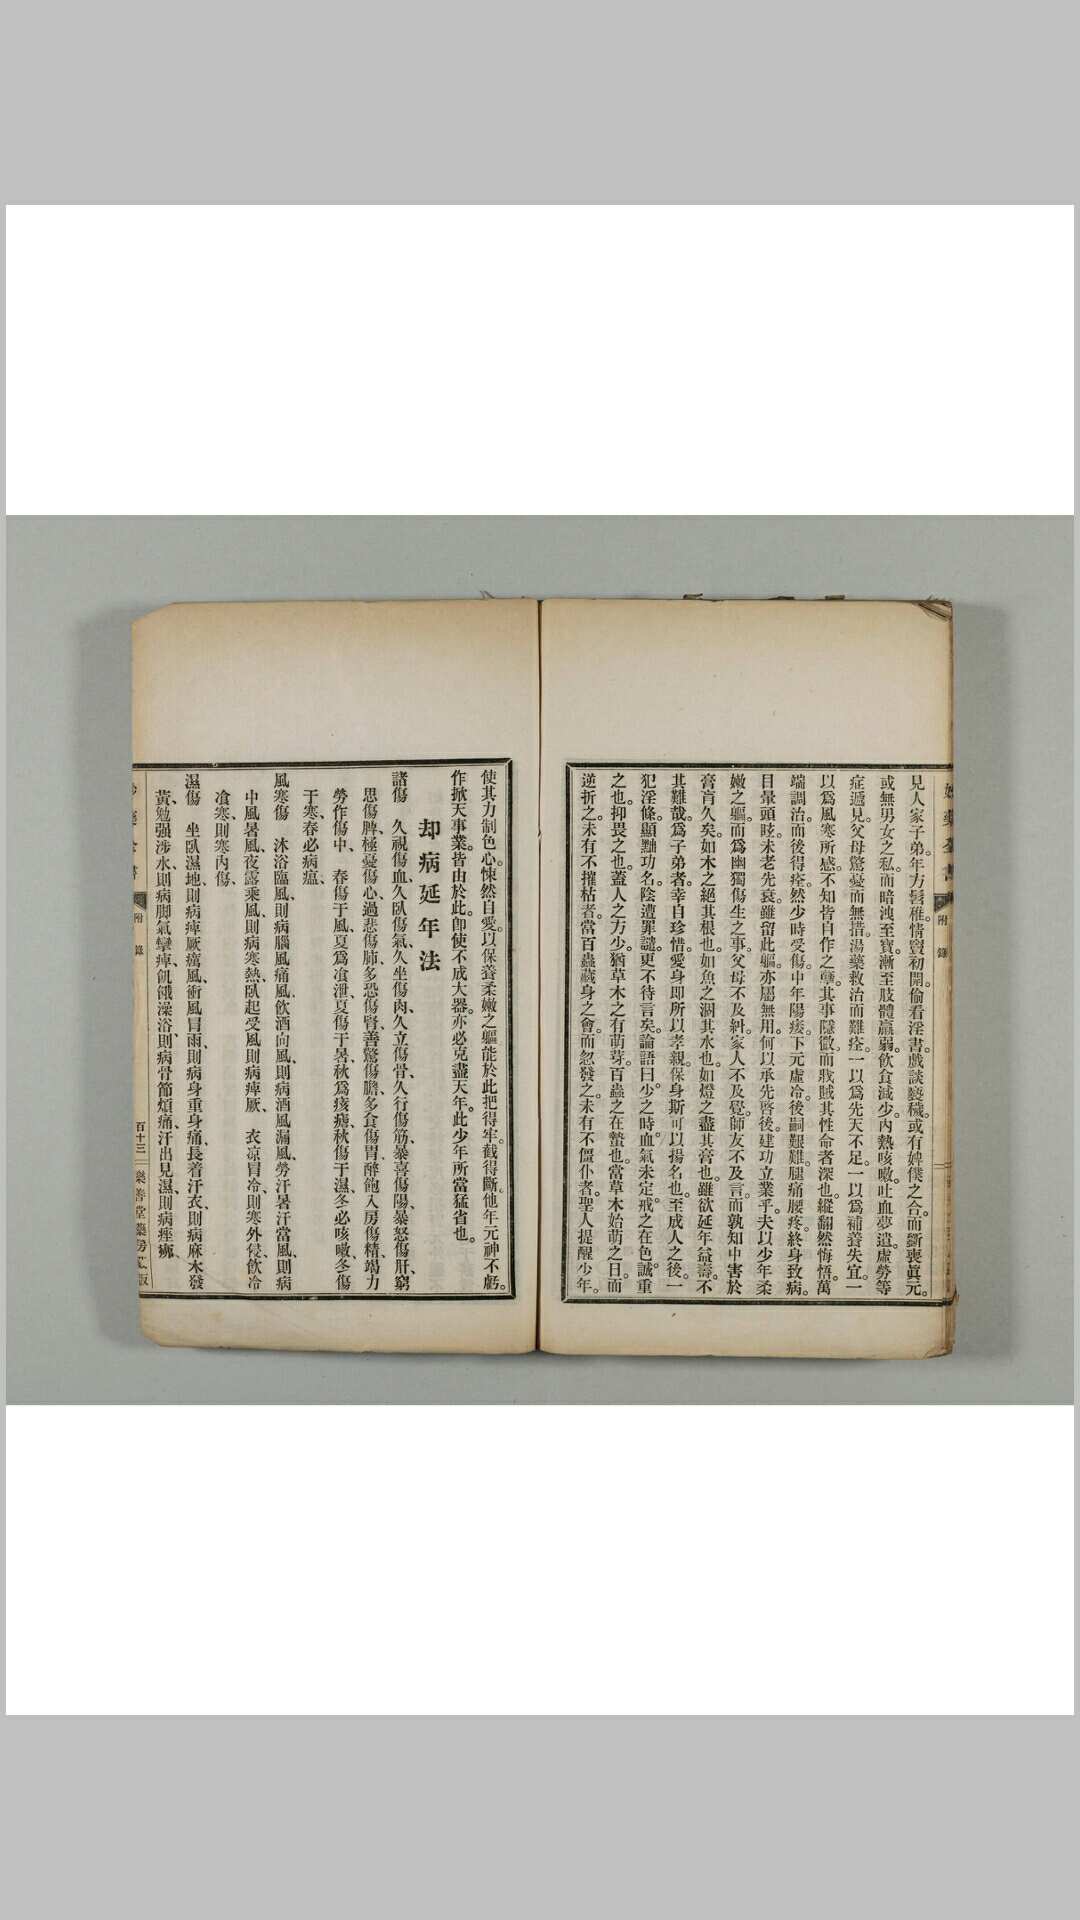 見人家子弟。年方髫稚。情竇初開。偷看淫書。戲談褻穢。或有婢僕之合。而斵喪眞元。
或無男女之私。而暗洩至寶。漸至肢體羸弱。飲食減少。內熱咳嗽。吐血夢遺。虛勞等
症遞見。父母驚憂。而無措。湯藥救治而難痊。一以爲先天不足。一以爲補養失宜。一
以爲風寒所感。不知皆自作之孽。其事隱微。而戕賊其性命者深也。縱翻然悔悟。萬
端調治。而後得痊。然少時受傷。中年陽痿。下元虛冷。後嗣艱難。腿痛腰疼。終身致病。
目暈頭眩。未老先衰。雖留此軀。亦屬無用。何以承先啓後。建功立業乎。夫以少年柔
嫩之軀。而爲幽獨傷生之事。父母不及糾。家人不及覺。師友不及言。而孰知中害於
膏肓久矣。如木之絕其根也。如魚之涸其水也。如燈之盡其膏也。雖欲延年益壽。不
其難哉。爲子弟者。幸自珍惜。愛身即所以孝親。保身斯可以揚名也。至成人之後。一
犯淫條。顯黜功名。陰遭罪譴。更不待言矣。論語曰。少之時。血氣未定。戒之在色。誠重
之也。抑畏之也。蓋人之方少。猶草木之有萌芽。百蟲之在蟄也。當草木始萌之日。而
逆折之。未有不摧枯者。當百蟲藏身之會。而忽發之。未有不僵仆者。聖人提醒少年。
附 錄
使其力制色心。悚然自愛。以保養柔嫩之軀。能於此把得牢。截得斷。他年元神不虧。
作掀天事業。皆由於此。卽使不成大器。亦必克盡天年。此少年所當猛省也。
却病延年法
諸傷 久視傷血、久臥傷氣、久坐傷肉、久立傷骨、久行傷筋、暴喜傷陽、暴怒傷肝、窮
思傷脾、極憂傷心、過悲傷肺、多恐傷腎、善驚傷膽、多食傷胃、醉飽入房傷精、竭力
勞作傷中、 春傷于風、夏爲飡泄、夏傷于暑、秋爲痎瘧、秋傷于濕、冬必咳嗽、冬傷
于寒、春必病瘟、
風寒傷 沐浴臨風、則病腦風痛風、飲酒向風、則病酒風漏風、勞汗暑汗當風、則病
中風暑風、夜露乘風、則病寒熱、臥起受風、則病痺厥、 衣凉冒冷、則寒外侵、飲冷
飡寒、則寒內傷、
濕傷 坐臥濕地、則病痺厥癘風、衝風冒雨、則病身重身痛、長着汗衣、則病麻木發
黃、勉强涉水、則病脚氣攣痺、飢餓澡浴、則病骨節煩痛、汗出見濕、則病痤疿、
附 錄
百十三
樂善堂藥房 版